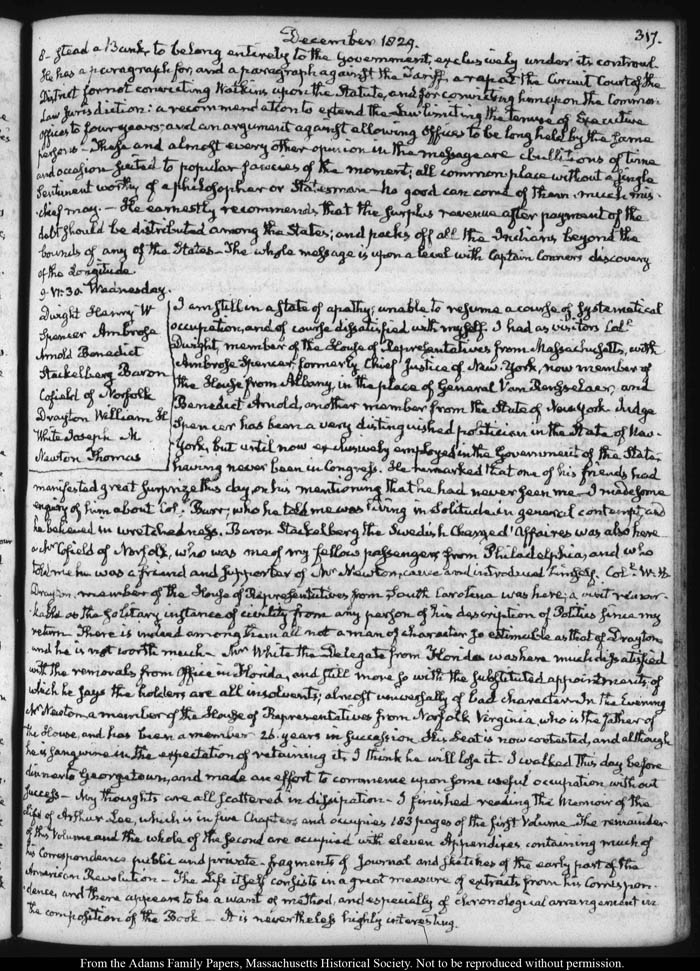 December 1829.
317.
8- stead a Bank, to belong entirely to the Government, exclusively under its controul
He has a paragraph for, and a paragraph against the Tariff; a rap at the Circuit Court of the
District for not convicting Watkins upon the Statute, and for convicting him upon the Common
Law Jurisdiction: a recommendation to extend the Law limiting the tenure of Executive
offices to four years; and an argument against allowing offices to be long held by the same
persons- These and almost every other opinion in the message are ebullitions of time
and occasion suited to popular fancies of the moment; all common place without a single
Sentiment worthy of a philosopher or Statesman- no good can come of them. much mis-
chief may.- He earnestly recommends that the surplus revenue after payment of the
debt should be distributed among the States; and packs off all the Indians, beyond the
bounds of any of the States- The whole message is upon a level with Captain Conners discovery
of the Longitude.
9. VI:30. Wednesday.
Dwight Henry W
Spencer Ambrose
Arnold Benedict
Stackelberg Baron
Cofield of Norfolk
Drayton William H
White Joseph M.
Newton Thomas
I am still in a state of apathy; unable to resume a course of systematical
occupation, and of course dissatisfied with myself. I had as visitors Coll.
Dwight, member of the House of Representatives from Massachusetts, with
Ambrose Spencer, formerly Chief Justice of New-York, now member of
the House from Albany, in the place of General Van Rensselaer, and
Benedict Arnold, another member from the State of New York. Judge
Spencer has been a very distinguished politician in the State of New-
York, but until now exclusively employed in the Government of the State,
having never been in Congress. He remarked that one of his friends had
manifested great surprize this day on his mentioning that he had never seen me- I made some
enquiry of him about Col. Burr; who he told me was living in solitude in general contempt, and
he believed in wretchedness. Baron Stackelberg the Swedish Chargé d'Affaires was also here-
a Mr Cofield of Norfolk, who was one of my fellow passengers from Philadelphia, and who
told me he was a friend and supporter of Mr Newton, came and introduced himself. Coll. W. H
Drayton, member of the House of Representatives from South Carolina was here; a visit remar-
kable as the solitary instance of civility from any person of his description of Politics since my
return There is indeed among them all not a man of character so estimable as that of Drayton,
and he is not worth much- Mr White the Delegate from Florida was here much dissatisfied
with the removals from Office in Florida, and still more so with the substituted appointments, of
which he says the holders are all insolvents; almost universally of bad character- In the Evening
Mr Newton, a member of the House of Representatives from Norfolk Virginia, who is the father of
the House, and has been a member 26. years in succession His Seat is now contested, and although
he is sanguine in the expectation of retaining it, I think he will lose it. I walked this day before
dinner to Georgetown, and made an effort to commence upon some useful occupation without
success- My thoughts are all scattered in dissipation- I finished reading the Memoir of the
Life of Arthur Lee, which is in five Chapters and occupies 183 pages of the first Volume- The remainder
of the Volume and the whole of the second are occupied with eleven Appendixes containing much of
his Correspondence public and private- fragments of Journal and sketches of the early part of the
American Revolution- The Life itself consists in a great measure of extracts from his Correspon-
dence, and there appears to be a want of method, and especially of chronological arrangement in
the composition of the Book- It is nevertheless highly interesting.
From the Adams Family Papers, Massachusetts Historical Society. Not to be reproduced without permission.